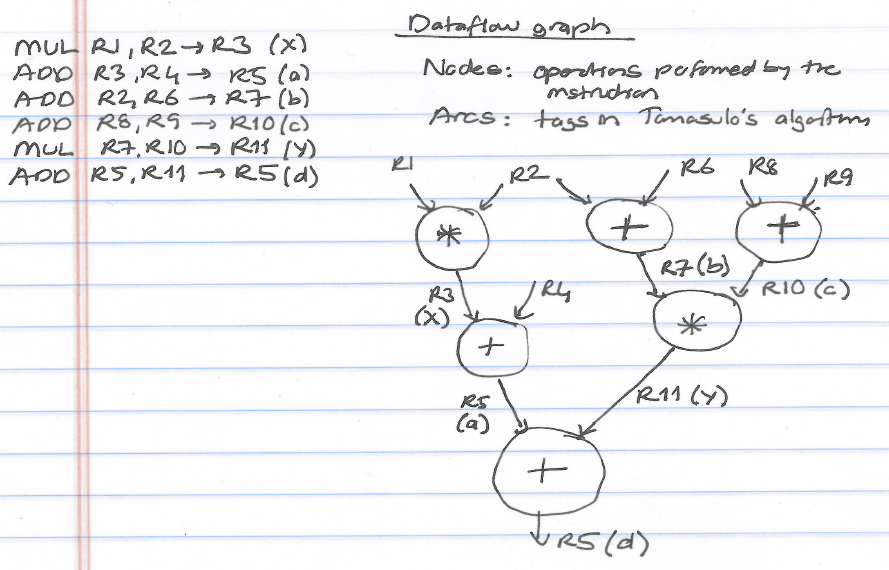 Dataflow graph
MUL R1, R2 → R3 (X)
ADD R3, R4 → R5 (a)
ADD R2, R6 → R7 (b)
ADD R8, R9 → R10 (c)
MUL R7, R10 → R11 (Y)
ADD R5, R11 → R5 (d)
Nodes: operations performed by the
instruction
Arcs: tags in Tomasulo's algorithm
R1 R2 R6 R8 R9
* + +
R7 (b)
R10 (c)
R3
(X)
R4
*
+
R11 (Y)
R5
(a)
+
R5 (d)